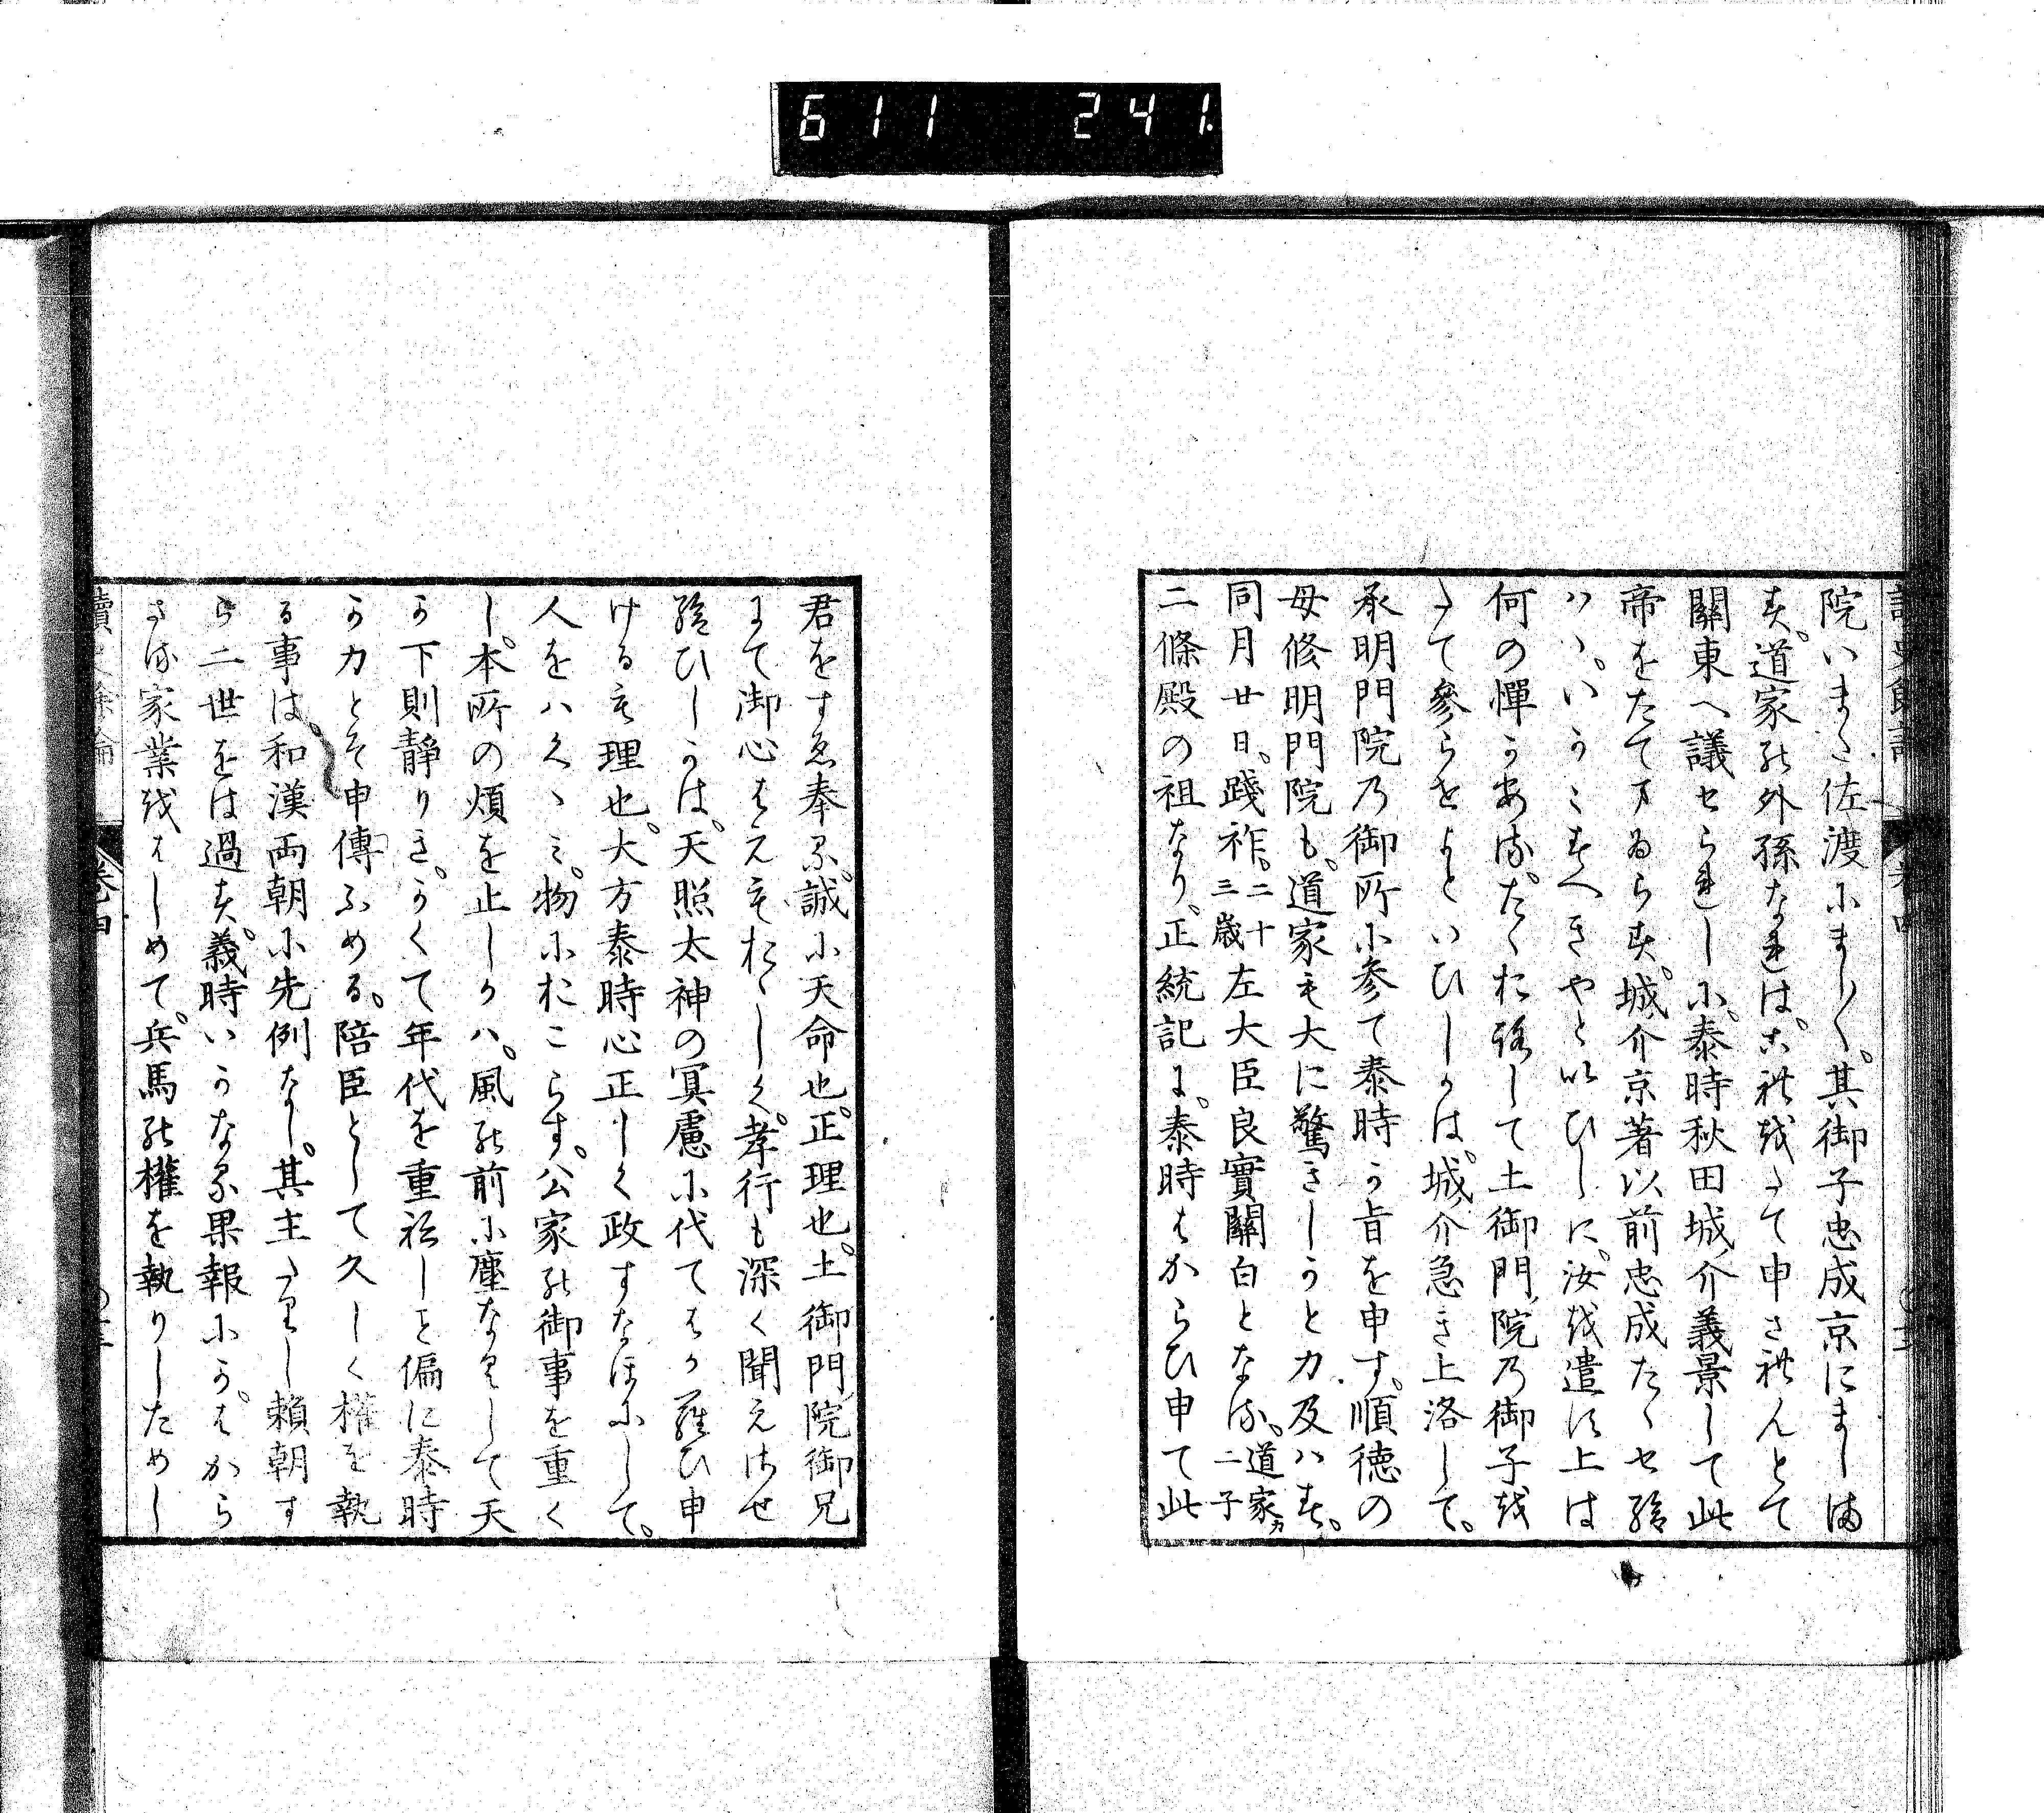 611 241
院いまた佐渡にまし〳〵。其御子忠成京にましま
す。道家の外孫なれは。これをたて申されんとて
關東へ議せられしに。泰時秋田城介義景して此
帝をたてまゐらす。城介京著以前忠成たゝせ給
ハヽ。いかゝすへきやといひしに。汝を遣す上は
何の憚かある。たゝおろして土御門院の御子を
たて參らせよといひしかは。城介急き上洛して。
承明門院の御所に参て泰時か旨を申す。順徳の
母修明門院も。道家も大に驚きしかと力及ハす。
同月廿日。踐祚。二十三歳左大臣良實關白となる。道家カ二子
二條殿の祖なり。正統記に。泰時はからひ申て此
君をすゑ奉る。誠に天命也。正理也。土御門院御兄
にて御心はえもおゝしく。孝行も深く聞えさせ
給ひしかは。天照太神の冥慮に代てはからひ申
けるも理也。大方泰時心正しく政すなほにして。
人をハくゝミ。物におこらす。公家の御事を重く
し。本所の煩を止しかハ。風の前に塵なくして天
か下則靜りき。かくて年代を重ねしこと偏に泰時
か力とそ申傳ふめる。陪臣として久しく權を執
る事は。和漢両朝に先例なし。其主たりし頼朝す
ら二世をは過す。義時いかなる果報にか。はから
さる家業をはしめて。兵馬の權を執りしためし
讀史餘論 卷四